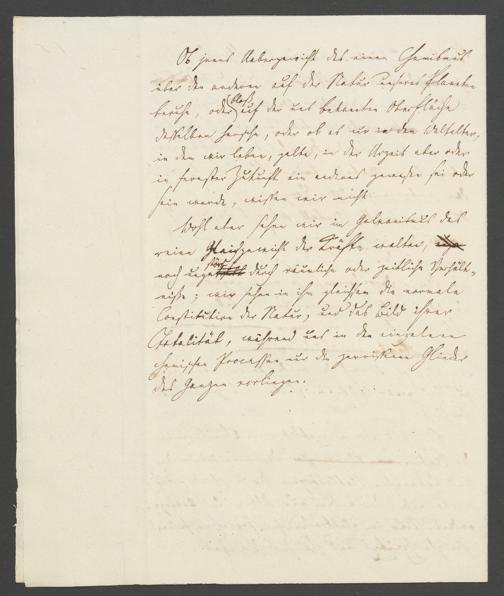 Ob jenes Uebergewicht des einen Chemismus
über den anderen auf der Natur unseres Planeten
beruhe, oder blos auf der uns bekannten Oberfläche
desselben herrsche, oder ob es nur in dem Weltalter,
in dem wir leben, gelte, in der Urzeit aber oder
in fernster Zukunft ein anderes gewesen sei oder
sein werde, wissen wir nicht.
Wohl aber sehen wir im Galvanismus das
reine Gleichgewicht der Kräfte walten,
noch ungestört durch räumliche oder zeitliche Verhält-
nisse; wir sehen in ihm gleichsam die normale
Constitution der Natur, und das Bild ihrer
Totalität, während uns in den einzelnen
chemischen Processen nur die zerrissenen Glieder
des Ganzen vorliegen.